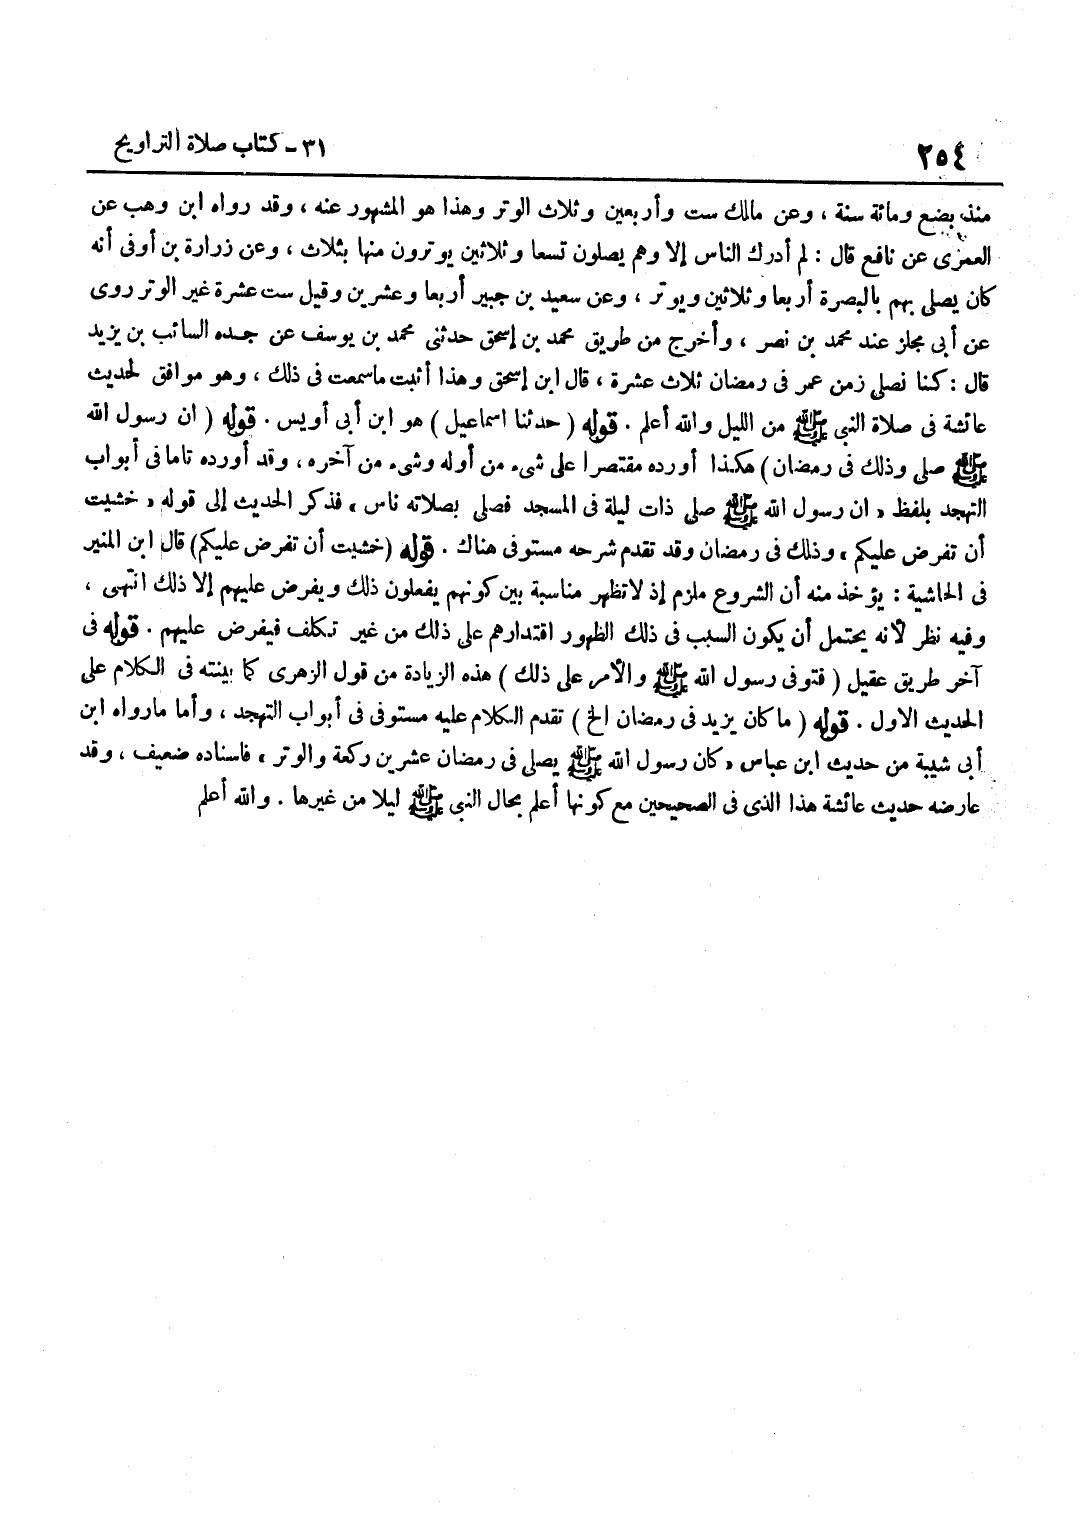 ٢٥٤
٣١ - كتاب صلاة التراويح
منذ بضع ومائة سنة ، وعن مالك ست وأربعين وثلاث الوتر وهذا هو المشهور عنه ، وقد رواه ابن وهب عن
العمرى عن نافع قال : لم أدرك الناس إلا وهم يصلون تسعا وثلاثين يوترون منها بثلاث ، وعن زرارة بن أوفى أنه
كان يصلى بهم بالبصرة أربعا وثلاثين ويوتر ، وعن سعيد بن جبير أربعا وعشرين وقيل ست عشرة غير الوتر روى
عن أبى مجلز عند محمد بن نصر ، وأخرج من طريق محمد بن إسحق حدثنى محمد بن يوسف عن جده السائب بن يزيد
قال : كنا نصلى زمن عمر فى رمضان ثلاث عشرة ، قال ابن إسحق وهذا أثبت ماسمعت فى ذلك ، وهو موافق لحديث
عائشة فى صلاة النبى ﷺ من الليل والله أعلم . قوله ( حدثنا اسماعيل ) هو ابن أبى أويس . قوله ( ان رسول الله
ﷺ صلى وذلك فى رمضان ) هكذا أورده مقتصرا على شىء من أوله وشىء من آخره ، وقد أورده تاما فى أبواب
التهجد بلفظ « ان رسول الله ﷺ صلى ذات ليلة فى المسجد فصلى بصلاته ناس ، فذكر الحديث إلى قوله « خشيت
أن تفرض عليكم ، وذلك فى رمضان وقد تقدم شرحه مستوفى هناك . قوله (خشيت أن تفرض عليكم) قال ابن المنير
فى الحاشية : يؤخذ منه أن الشروع ملزم إذ لاتظهر مناسبة بين كونهم يفعلون ذلك ويفرض عليهم إلا ذلك انتهى ،
وفيه نظر لأنه يحتمل أن يكون السبب فى ذلك الظهور اقتدارهم على ذلك من غير تكلف فيفرض عليهم . قوله فى
آخر طريق عقيل ( فتوفى رسول الله ﷺ والأمر على ذلك ) هذه الزيادة من قول الزهرى كما بينته فى الكلام على
الحديث الاول . قوله ( ماكان يزيد فى رمضان الخ ) تقدم الكلام عليه مستوفى فى أبواب التهجد ، وأما مارواه ابن
أبى شيبة من حديث ابن عباس « كان رسول الله ﷺ يصلى فى رمضان عشرين ركعة والوتر » فاسناده ضعيف ، وقد
عارضه حديث عائشة هذا الذى فى الصحيحين مع كونها أعلم بحال النبى ﷺ ليلا من غيرها . والله أعلم